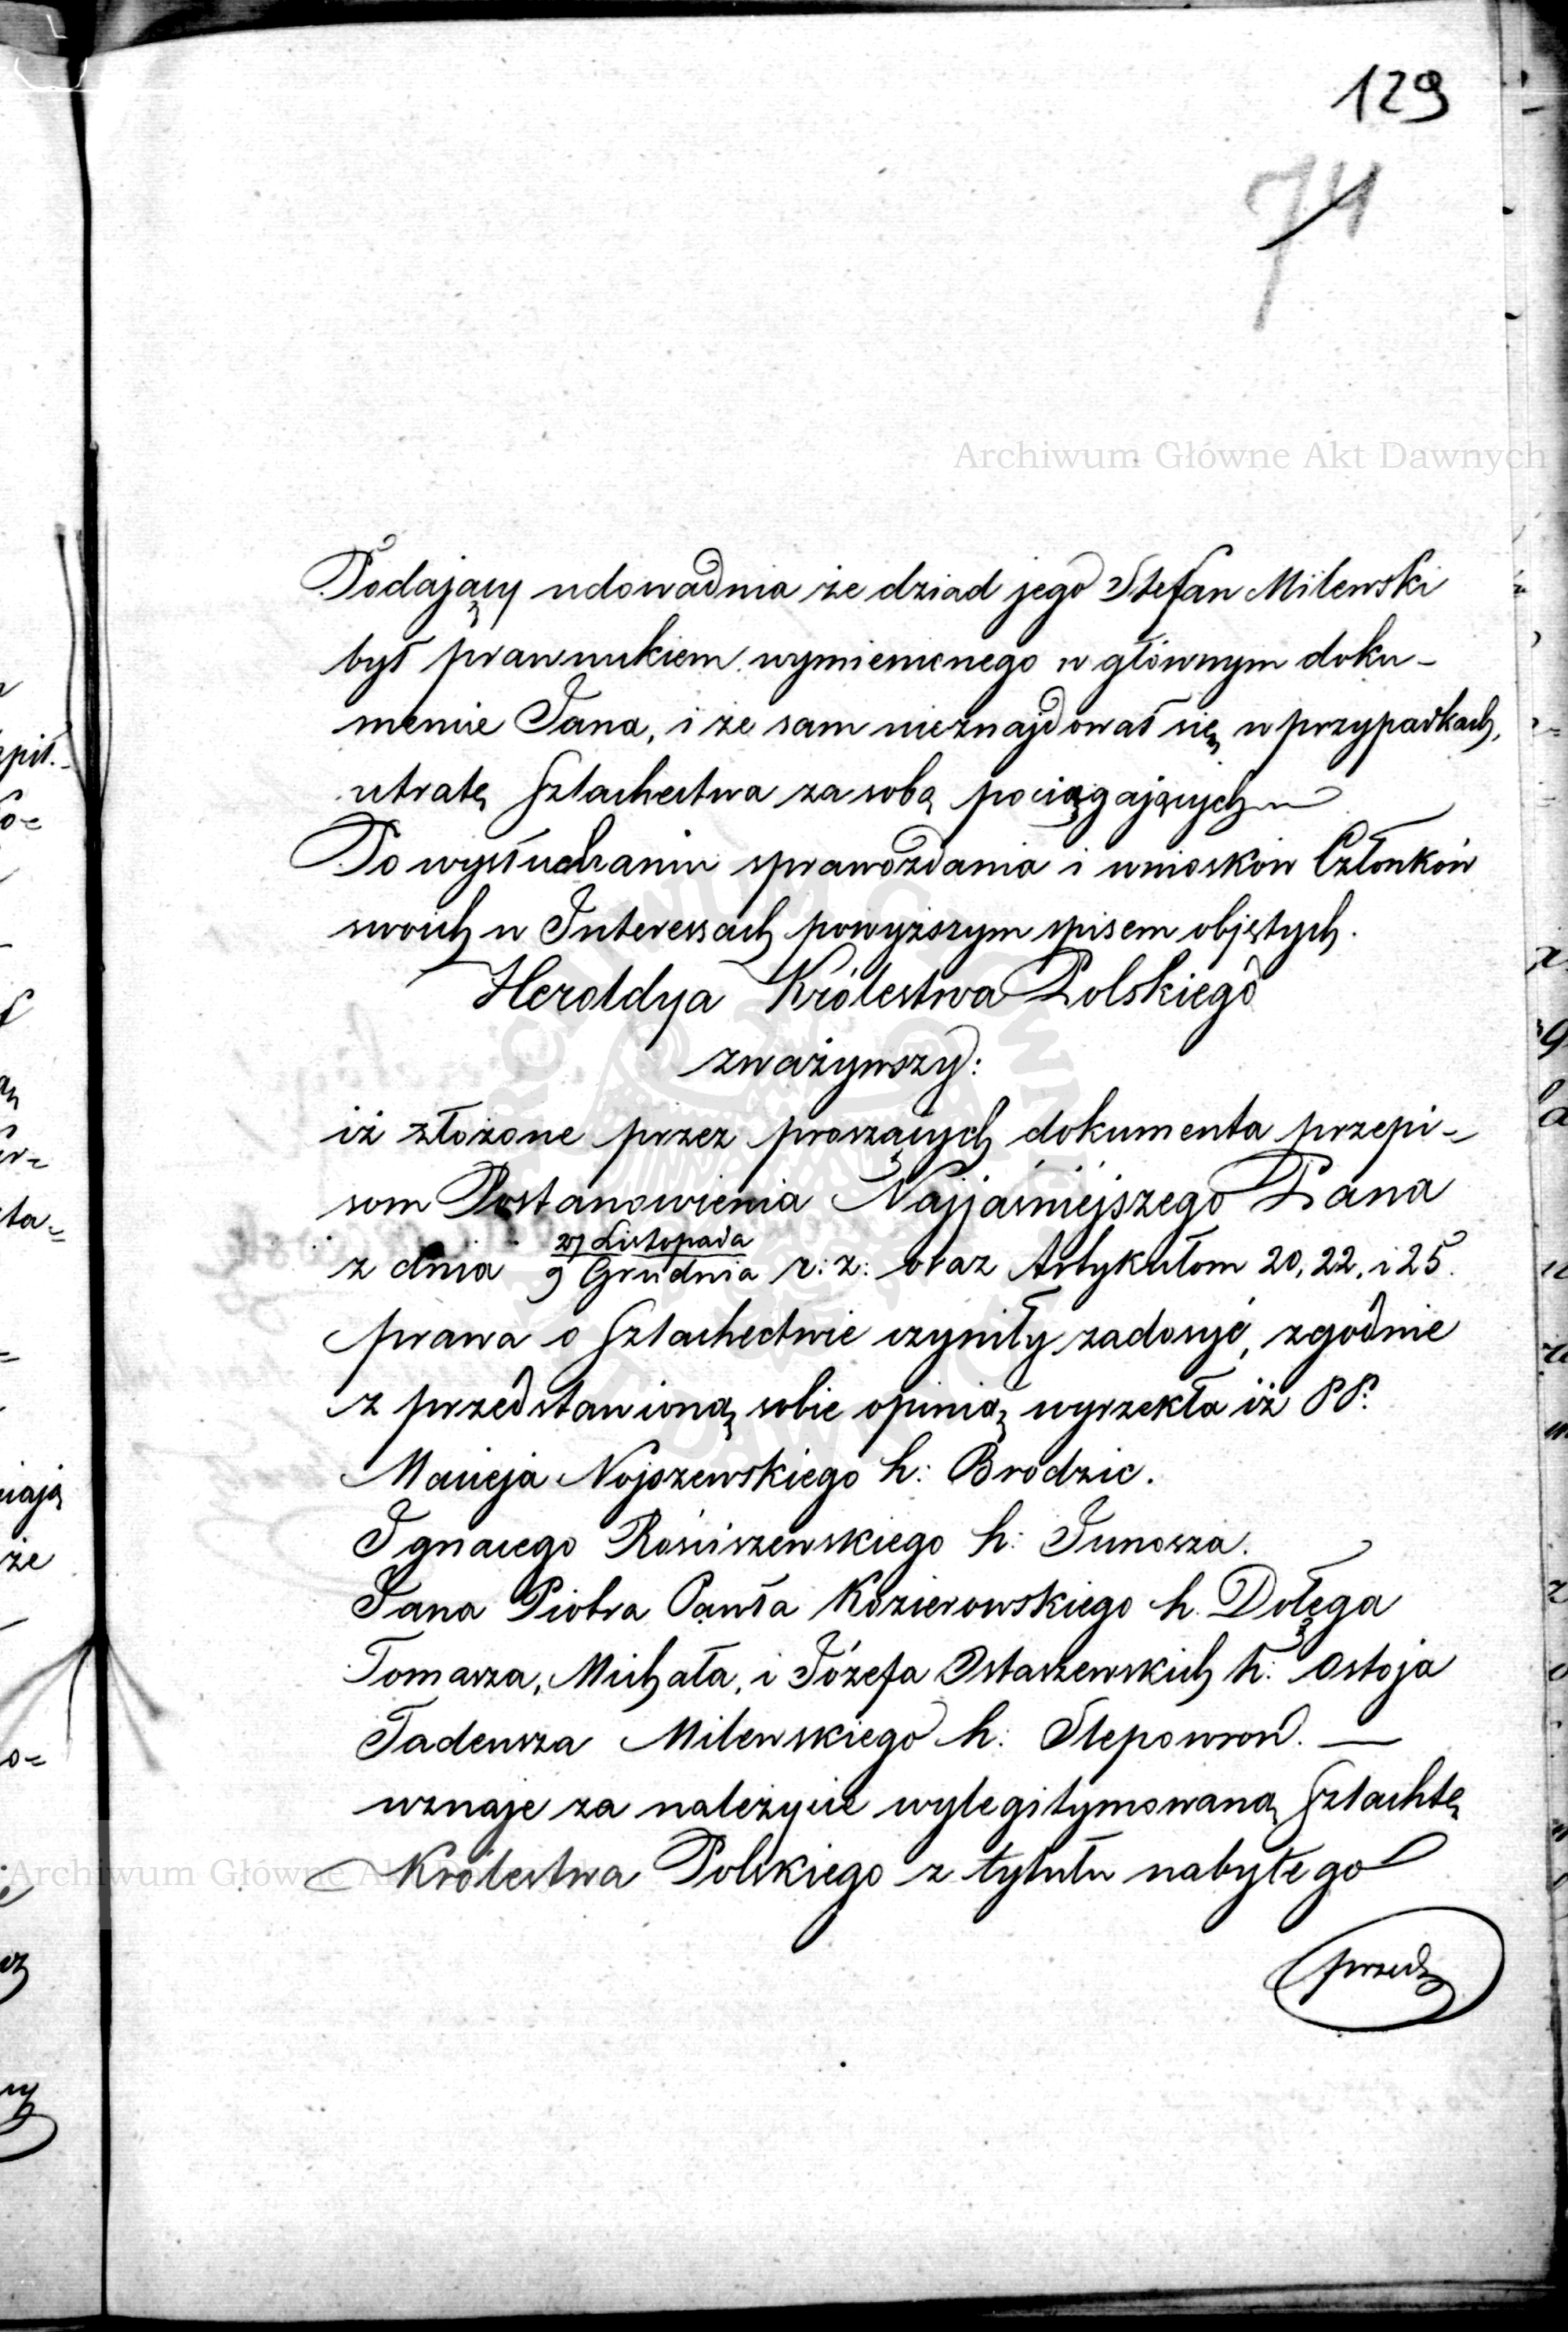 129
74
Archiwum Główne Akt Dawnych
Podający udowadnia że dziad jego Stefan Milewski
był prawnukiem wymienionego w głównym doku-
mencie Jana, i że sam nieznajdował się w przypadkach,
utratę Szlachectwa za sobą pociągających
Po wysłuchaniu sprawozdania i wniosków Członków
swoich w Interessach powyższym spisem objętych.
Heroldya Królestwa Polskiego
zważywszy:
iż złożone przez proszących dokumenta przepi-
som Postanowienia Najjaśniejszego Pana
z dnia 27 Listopada / 9 Grudnia r: z: oraz Artykułom 20, 22, i 25.
prawa o Szlachectwie czyniły zadosyć, zgodnie
z przedstawioną sobie opinią wyrzekła iż PP.
Macieja Nojszewskiego h: Brodzic.
Ignacego Rościszewskiego h: Junosza.
Jana Piotra Pawła Kozierowskiego h. Dołęga
Tomasza, Michała, i Józefa Ostaszewskich h: Ostoja
Tadeusza Milewskiego h: Slepowron. —
uznaje za należycie wylegitymowaną Szlachtę
Królestwa Polskiego z tytułu nabytego
przed